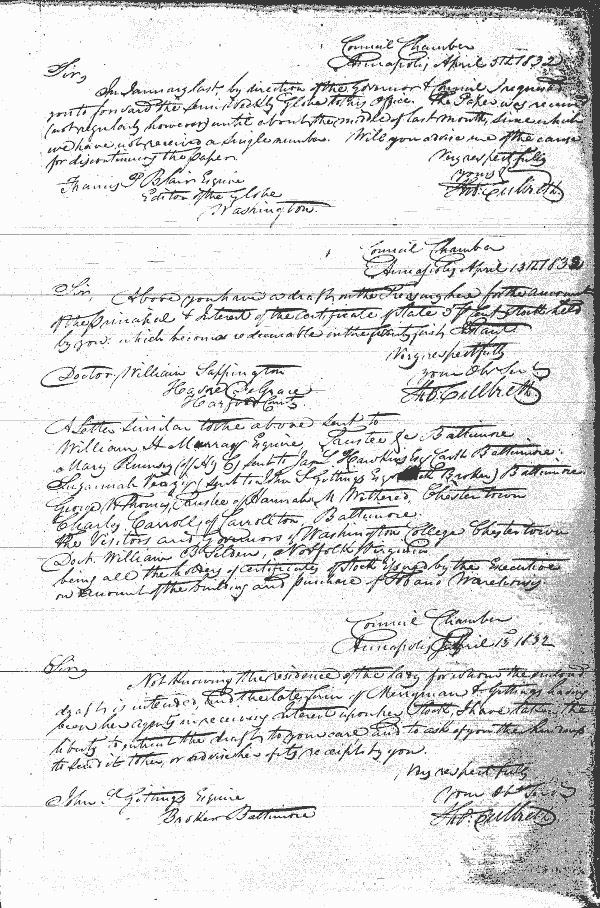 Council Chamber
Annapolis April 5th 1832
Sir,
In January last, by direction of the Governor & Council I requested
you to forward the Semi Weekly Globe to this Office. The Paper was received
(not regularly however) until about the middle of last month, since which
we have not received a single number. Will you advise me of the cause
for discontinuing the Paper.
Very respectfully
Yours &
Ths. Culbreth
Francis P Blair Esquire
Editor of the Globe
Washington.
Council Chamber
Annapolis April 13th 1832
Sir, Above you have a draft on the Treasury here for the amount
of the Principal & Interest of the Certificate of State 5 P Cent Stock held
by you, which became redeemable in the
Very respectfully
your Ob Servt
Ths. Culbreth.
Doctor William Sappington
Havre De Grace
Harford County.
A Letter Similar to the above sent to
William H Murray Esquire, Trustee &c Baltimore
Mary Rumsey (of Hy C) sent to Hawkins Baltimore.
Susannah sent to John S Gittings Esqr (Broker) Baltimore
George W Thomas, Trustee of Hannah M Wethered, Chester town
Charles Carroll of Carrollton, Baltimore.
The Visitors and Governors of Washington College Chestertown
Doct. William B Selden, Norfolk Virginia
being all the holders of Certificates of Stock issued by the Executive
on account of the building and purchase of Tobacco Warehouses
Council Chamber
Annapolis April 13 1832
Sir,
Not knowing the residence of the lady for whom the enclosed
draft is intended, and the late firm of Merryman & Gittings having
been her agents in receiving Interest upon her Stock, I have taken the
liberty to submit the draft to your care and to ask of you the kindness
to send it to her, or advise her of its receipt by you.
Very respectfully
your Ob Servt
Ths. Culbreth
John S Gittings Esquire
Broker Baltimore